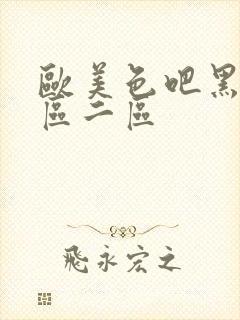 歐美色吧黑
區二區
飛永宏之